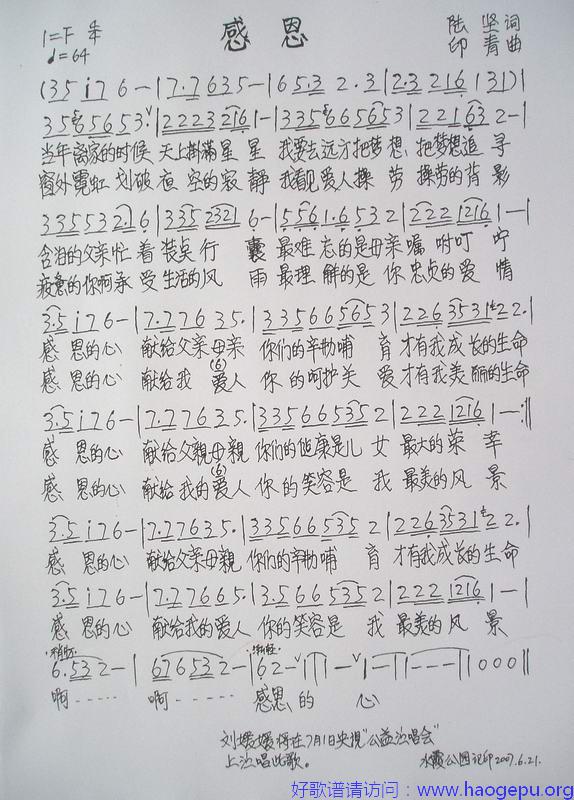 感恩
1=F 4/4
♩=64
陆坚词
印青曲
(35 i76-|7.7635-|65.32.3|2.3216131)|
3565653.ⱽ|2223216 1-|335665653|221632-|
当年离家的时候 天上掛满星星 我要去远方把梦想、把梦想追寻
窗外霓虹划破夜空的寂静 我看见爱人操劳操劳的背影
3355532.16|3352321 6-|5561.6532|2221216|1-|
含泪的父亲忙着装点行囊 最难忘的是母亲嘱咐叮咛
疲惫的你啊承受生活的风雨 最理解的是你忠贞的爱情
3.5i76-|7.77635.|335665653|22635312 2.|
感恩的心 献给父亲母亲 你们的辛勤哺育 才有我成长的生命
(6)
感恩的心 献给我爱人 你的呵护关爱 才有我美丽的生命
3.5i76-|7.77635.|335665352|2221216|1--:||
感恩的心 献给父親母親 你们的健康是儿女最大的荣幸
(6)
感恩的心 献给我的爱人 你的笑容是我最美的风景
3.5i76-|7.77635.|335665352|22635312 2.|
感恩的心 献给父亲母親 你们的辛勤哺育 才有我成长的生命
3.5i76-|7.77665.|3.56653 52|2221216|1-|
感恩的心 献给我的爱人 你的笑容是我最美的风景
6.532-|676532-|62-ⱽ1|1-ⱽ1|1-1|1---|1000||
啊····· 啊····· 感恩的心
刘媛媛将在7月1日央視"公益演唱会"
上演唱此歌。
水霞公园记印2007.6.21.
好歌谱请访问：www.haogepu.org